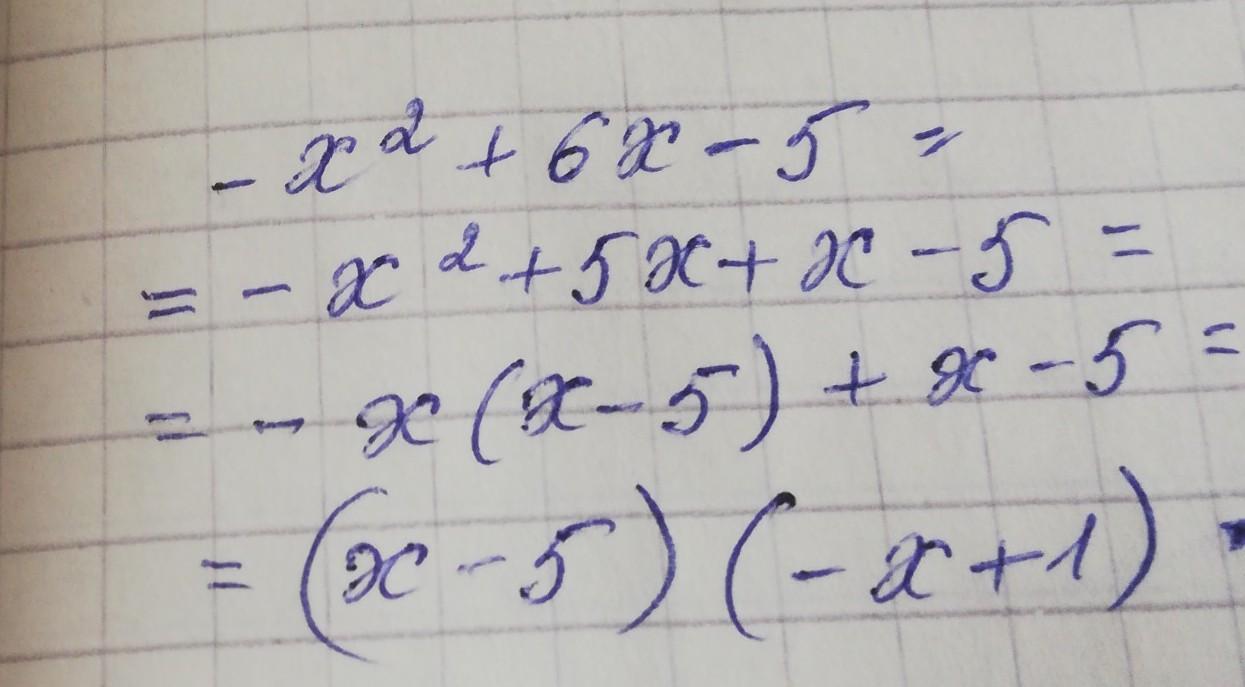 - x² + 6x - 5 =
= - x² + 5x + x - 5 =
= - x (x - 5) + x - 5 =
= (x - 5) (- x + 1)